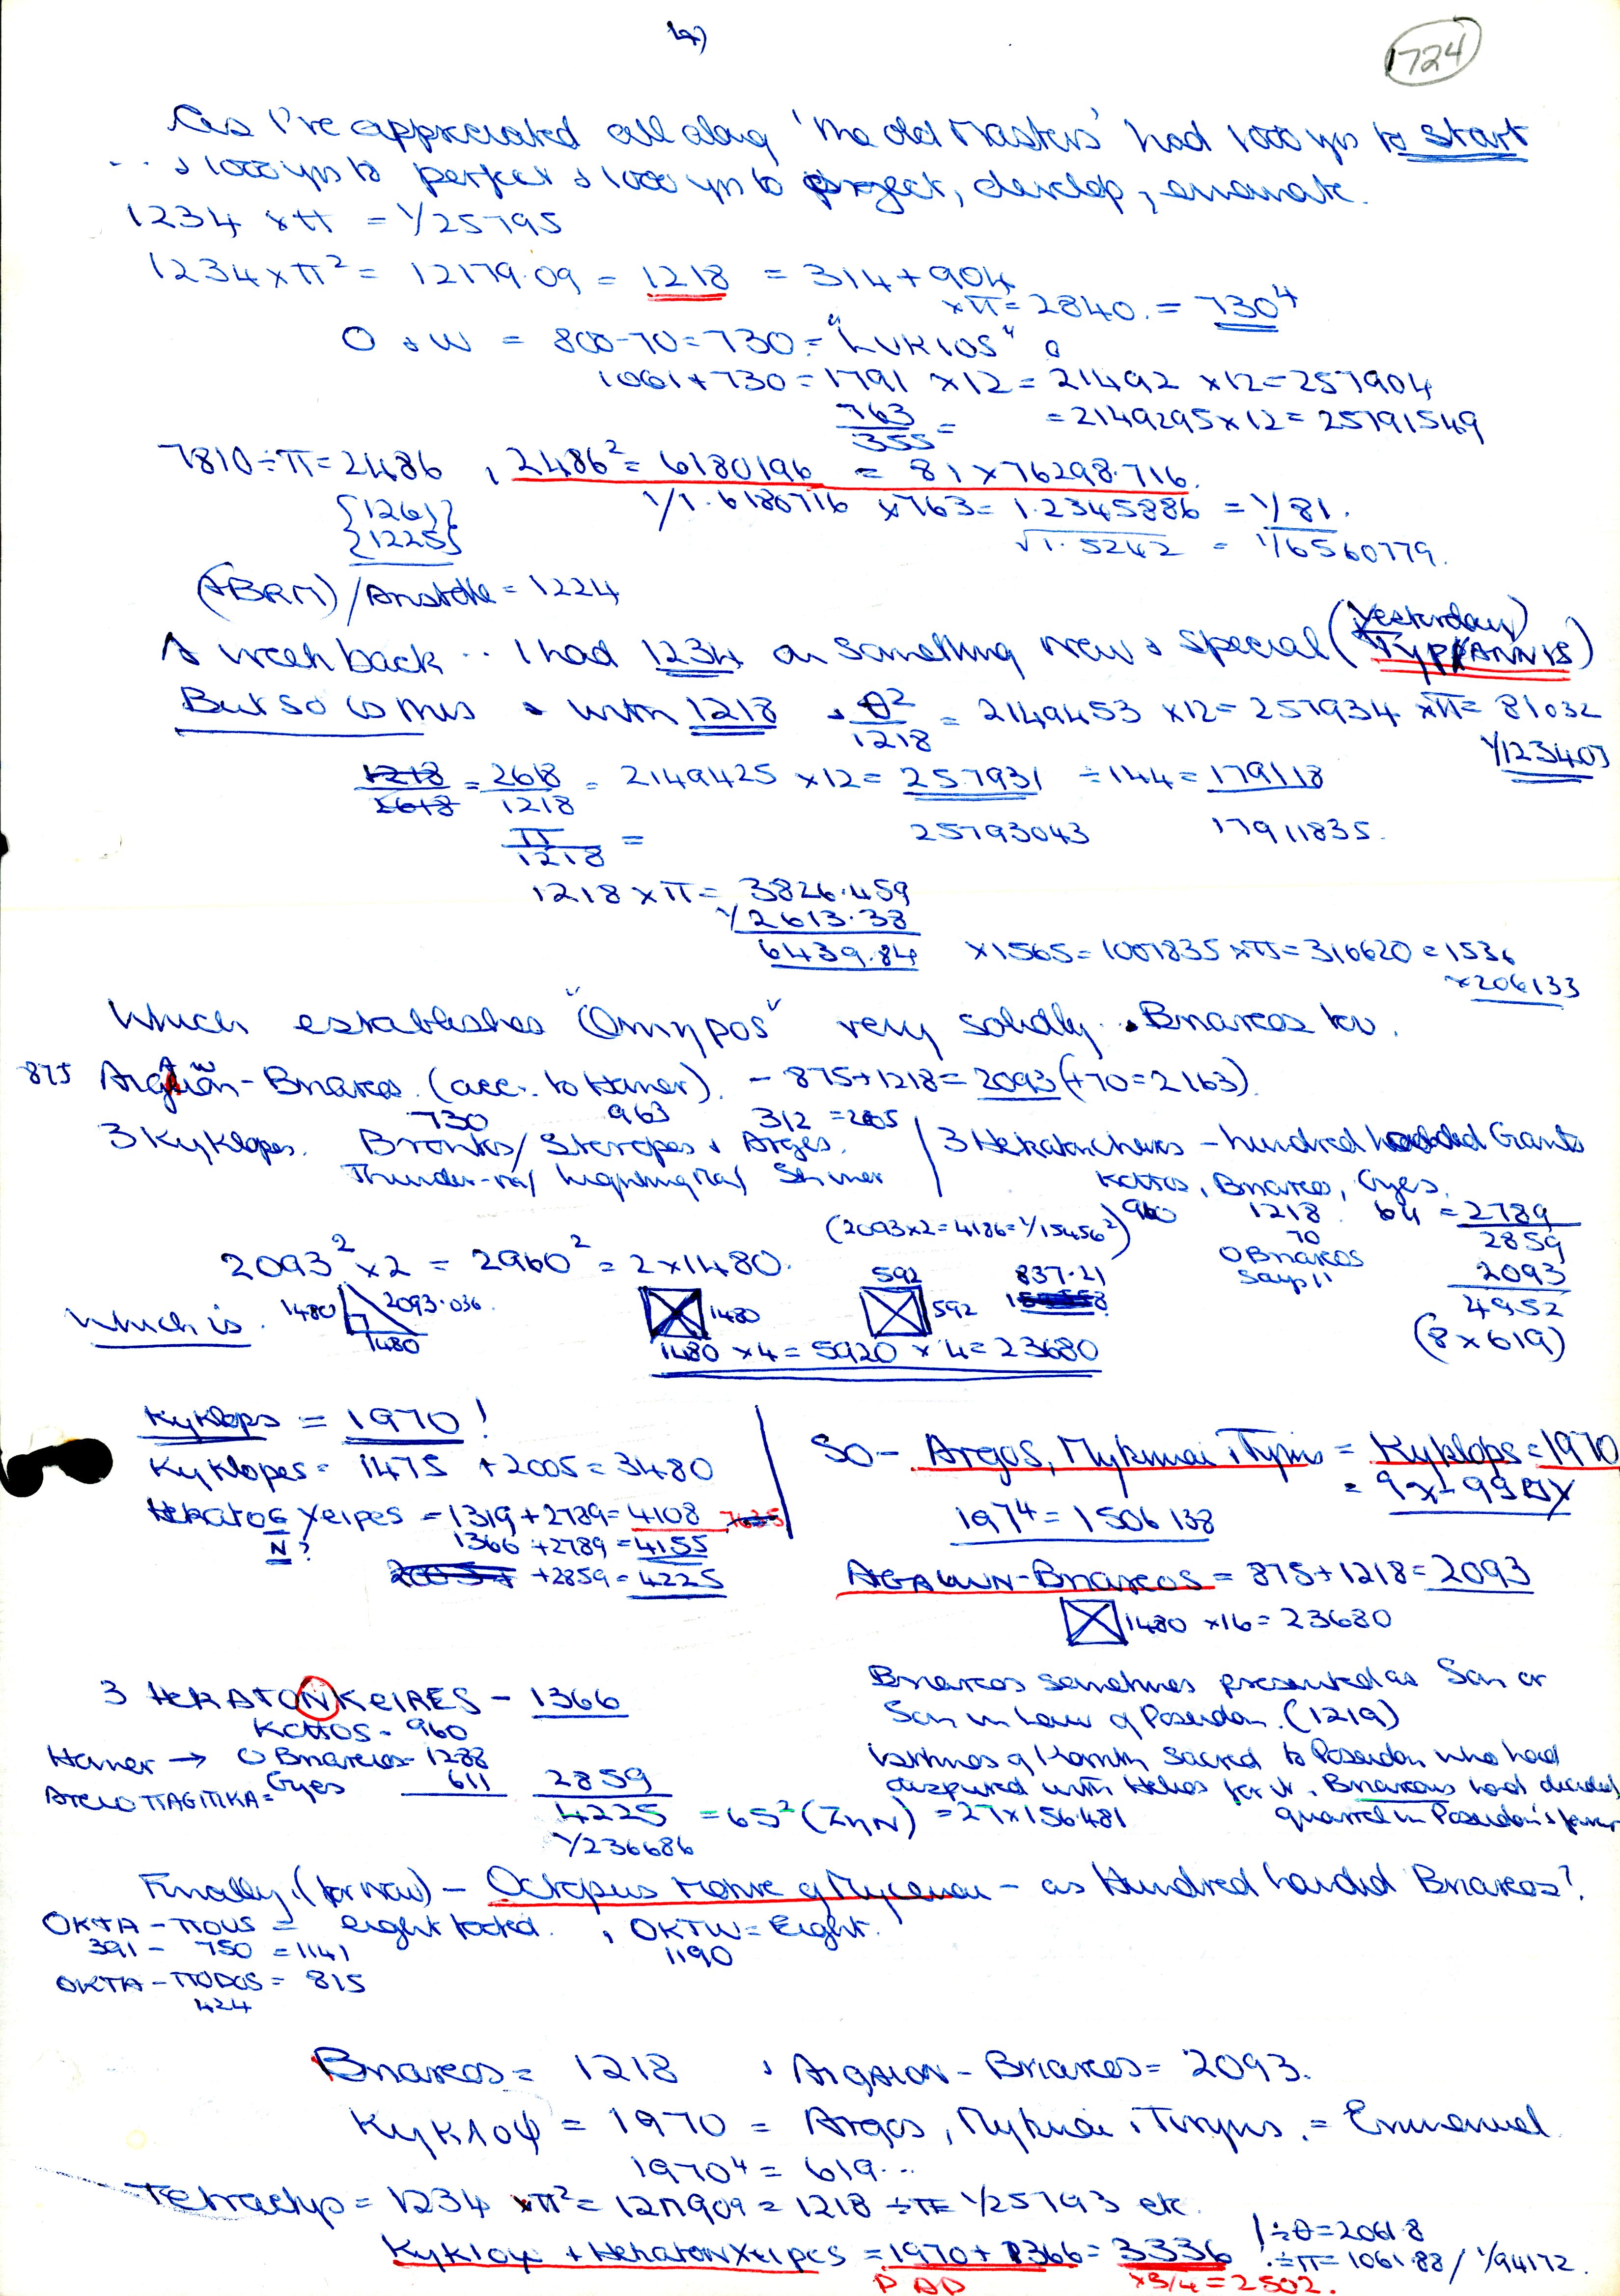 4)
1724
As I've appreciated all along 'the old Masters' had 1000 yrs to start
.. & 1000 yrs to perfect & 1000 yrs to project, develop, emanate.
1234 x π = 1/25795
1234 x π² = 12179.09 = 1218 = 314 + 904
x π = 2840. = 730⁴
O & W = 800-70 = 730 = "LUKIOS"
1061 + 730 = 1791 x 12 = 21492 x 12 = 257904
763/355 = = 2149295 x 12 = 25791549
7810 ÷ π = 2486, 2486² = 6180196 = 81 x 76298.716.
{1261} 1/1.6180716 x 763 = 1.2345886 = 1/81.
{1225} √1.5242 = 1/6560779.
(ABRM)/Aristotle = 1224
A week back .. I had 1234 as something new & special (yesterday) (TYPANNIS)
But so is this & with 1218 & θ²/1218 = 2149453 x 12 = 257934 x π = 81032
1/123403
1218/2618 = 2618/1218 = 2149425 x 12 = 257931 ÷ 144 = 179118
π/1218 = 25793043 17911835.
1218 x π = 3826.459
1/2613.38
6439.84 x 1565 = 1007835 x π = 316620 = 1536
x 206133
Which establishes "Omypos" very solidly. Briareos too.
875 Aigaiōn - Briareos. (acc. to Homer). - 875 + 1218 = 2093 (+70 = 2163).
730 963 312 = 2005
3 Kyklopes. Brontes/ Steropes & Arges. 3 Hekatoncheires - hundred handed Giants
Thunder-er/ Lightning er/ Shiner Kottos, Briareos, Gyes.
(2093 x 2 = 4186 = 1/15456²) 960 1218 611 = 2789
70 2859
2093² x 2 = 2960² = 2 x 1480. OBriareos 2093
says 11 4952
Which is. 1480 2093.036 1480 1480 592 592 837.21 (8 x 619)
1480 x 4 = 5920 x 4 = 23680
Kyklops = 1970!
Kyklopes = 1475 + 2005 = 3480
HEKATOG XEIPES = 1319 + 2789 = 4108
N? 1366 + 2789 = 4155
+ 2859 = 4225
SO - Argos, Mykinai & Tiryns = Kyklops = 1970
197⁴ = 1506138
AIGAIWN - Briareos = 875 + 1218 = 2093
1480 x 16 = 23680
3 HEKATONKEIRES - 1366
KOTTOS - 960
Homer → O Briareos - 1288
Gyes 611 2859
4225 = 65² (ZHN) = 27 x 156.481
1/236686
Briareos sometimes presented as Son or
Son in Law of Poseidon. (1219)
Isthmos of Korinth sacred to Poseidon who had
disputed with Helios for it. Briareos had decided
quarrel in Poseidon's favor
Finally, (for now) - Octopus motive of Mycenai - as Hundred handed Briareos?
OKTA - ΠOUS = eight footed. , OKTW = Eight.
391 - 750 = 1141 1190
OKTA - ΠODOS = 815
424
Briareos = 1218 & Aigaion - Briareos = 2093.
KYKΛOΨ = 1970 = Argos, Mykinai & Tiryns. = Emmanuel
1970⁴ = 619..
Tetractys = 1234 x π² = 1217909 = 1218 ÷ π = 1/25793 etc.
Kyklops + HekatonXeipes = 1970 + 1366 = 3336 ÷ θ = 2061.8
÷ π = 1061.88 / 1/94172.
x 3/4 = 2502.